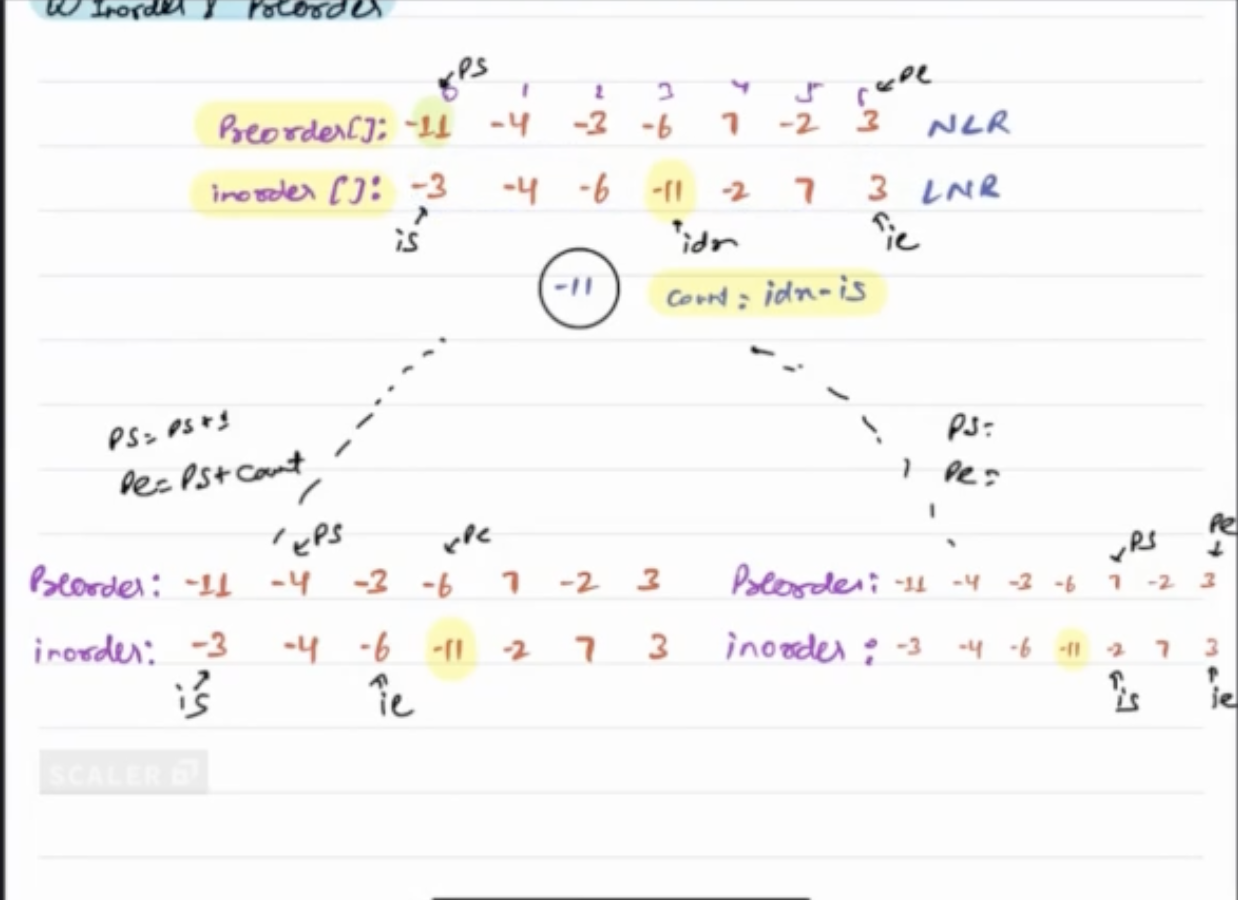 Inorder & Preorder
PS
0 1 2 3 4 5 6 pe
Preorder[]: -11 -4 -3 -6 7 -2 3 NLR
inorder []: -3 -4 -6 -11 -2 7 3 LNR
is idx ie
-11 count = idx-is
PS= PS+1
Pe= PS+count
PS=
Pe=
PS Pe
Preorder: -11 -4 -3 -6 7 -2 3
inorder: -3 -4 -6 -11 -2 7 3
is ie
PS Pe
Preorder: -11 -4 -3 -6 7 -2 3
inorder: -3 -4 -6 -11 -2 7 3
is ie
SCALER